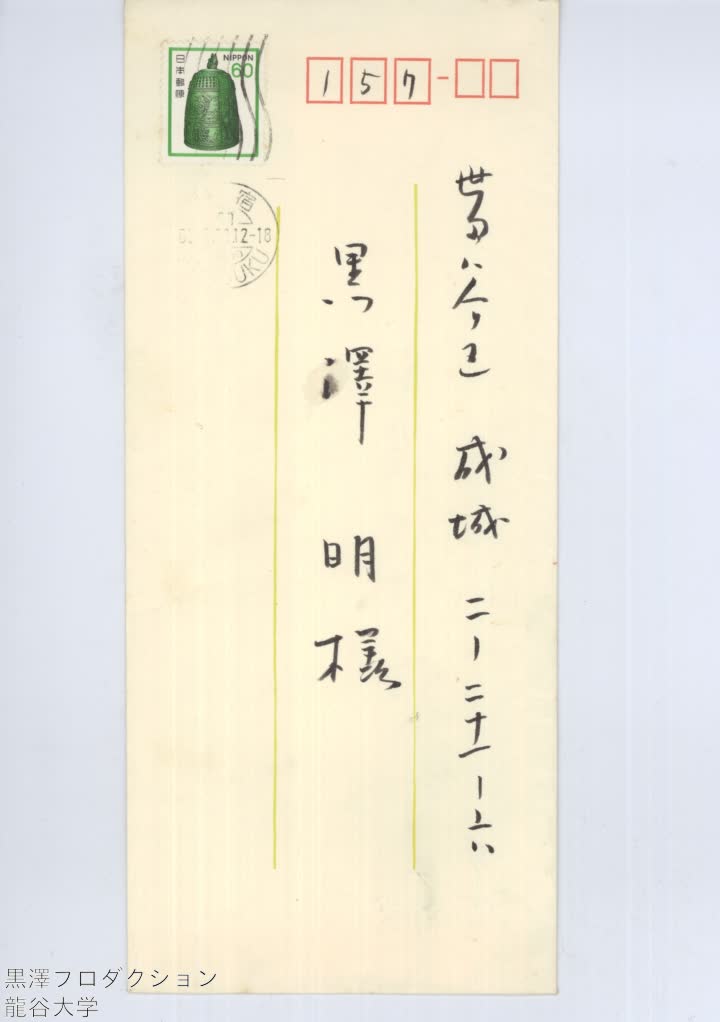 日本郵便
NIPPON
60
157
世田谷区 成城 二-二十一-六
黒澤 明様
12-18
黒澤フロダクション
龍谷大学